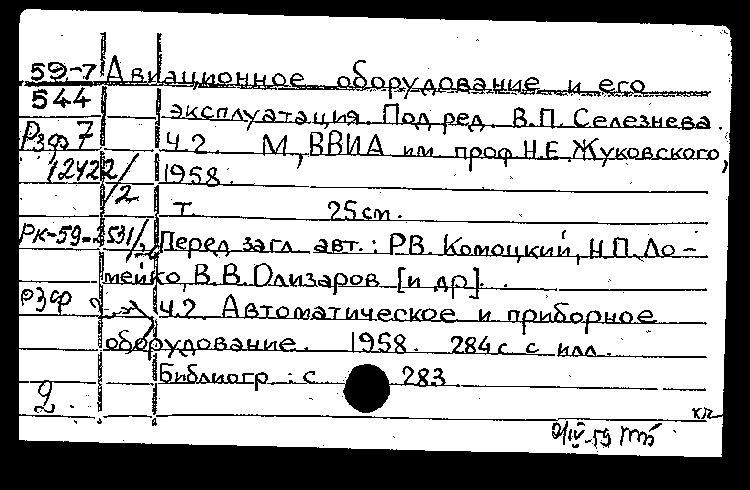 59-7 Авиационное оборудование и его
544 эксплуатация. Под ред. В.П. Селезнева.
Рзф 7 Ч.2. М., ВВИА им. проф. Н.Е. Жуковского,
12422/2 1958.
т. 25 см.
РК-59- Перед загл. авт.: Р.В. Комоцкий, Н.П. Ло-
мейко, В.В. Олизаров [и др].
рзф Ч.2. Автоматическое и приборное
оборудование. 1958. 284 с с илл.
Библиогр.: с 283.
2.